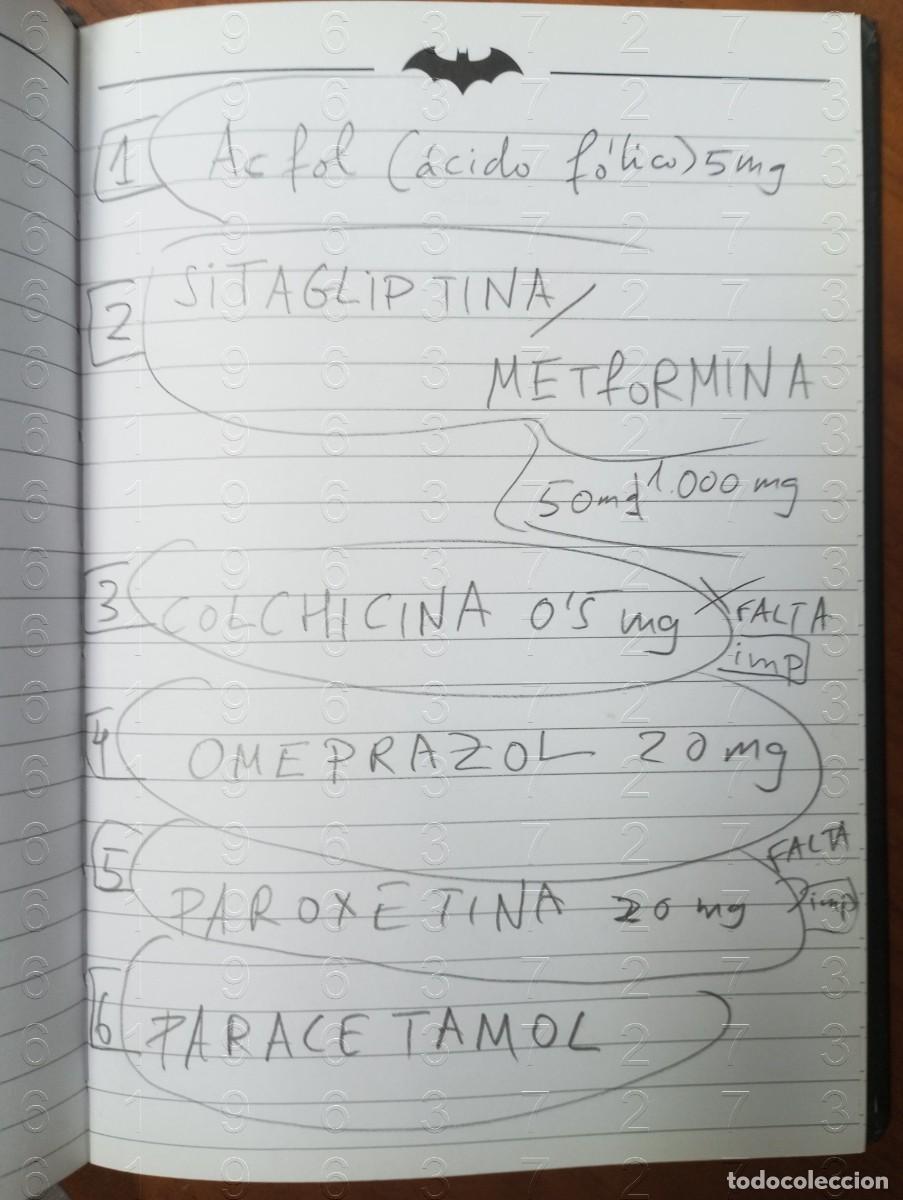 1 Acfol (ácido fólico) 5 mg
2 SiTAGLiPTINA/
METfoRMINA
50 mg 1.000 mg
3 COLCHICINA 0'5 mg X FALTA
imp
4 OMEPRAZOL 20 mg
FALTA
5 PAROXETINA 20 mg imp
6 PARACETAMOL
todocoleccion